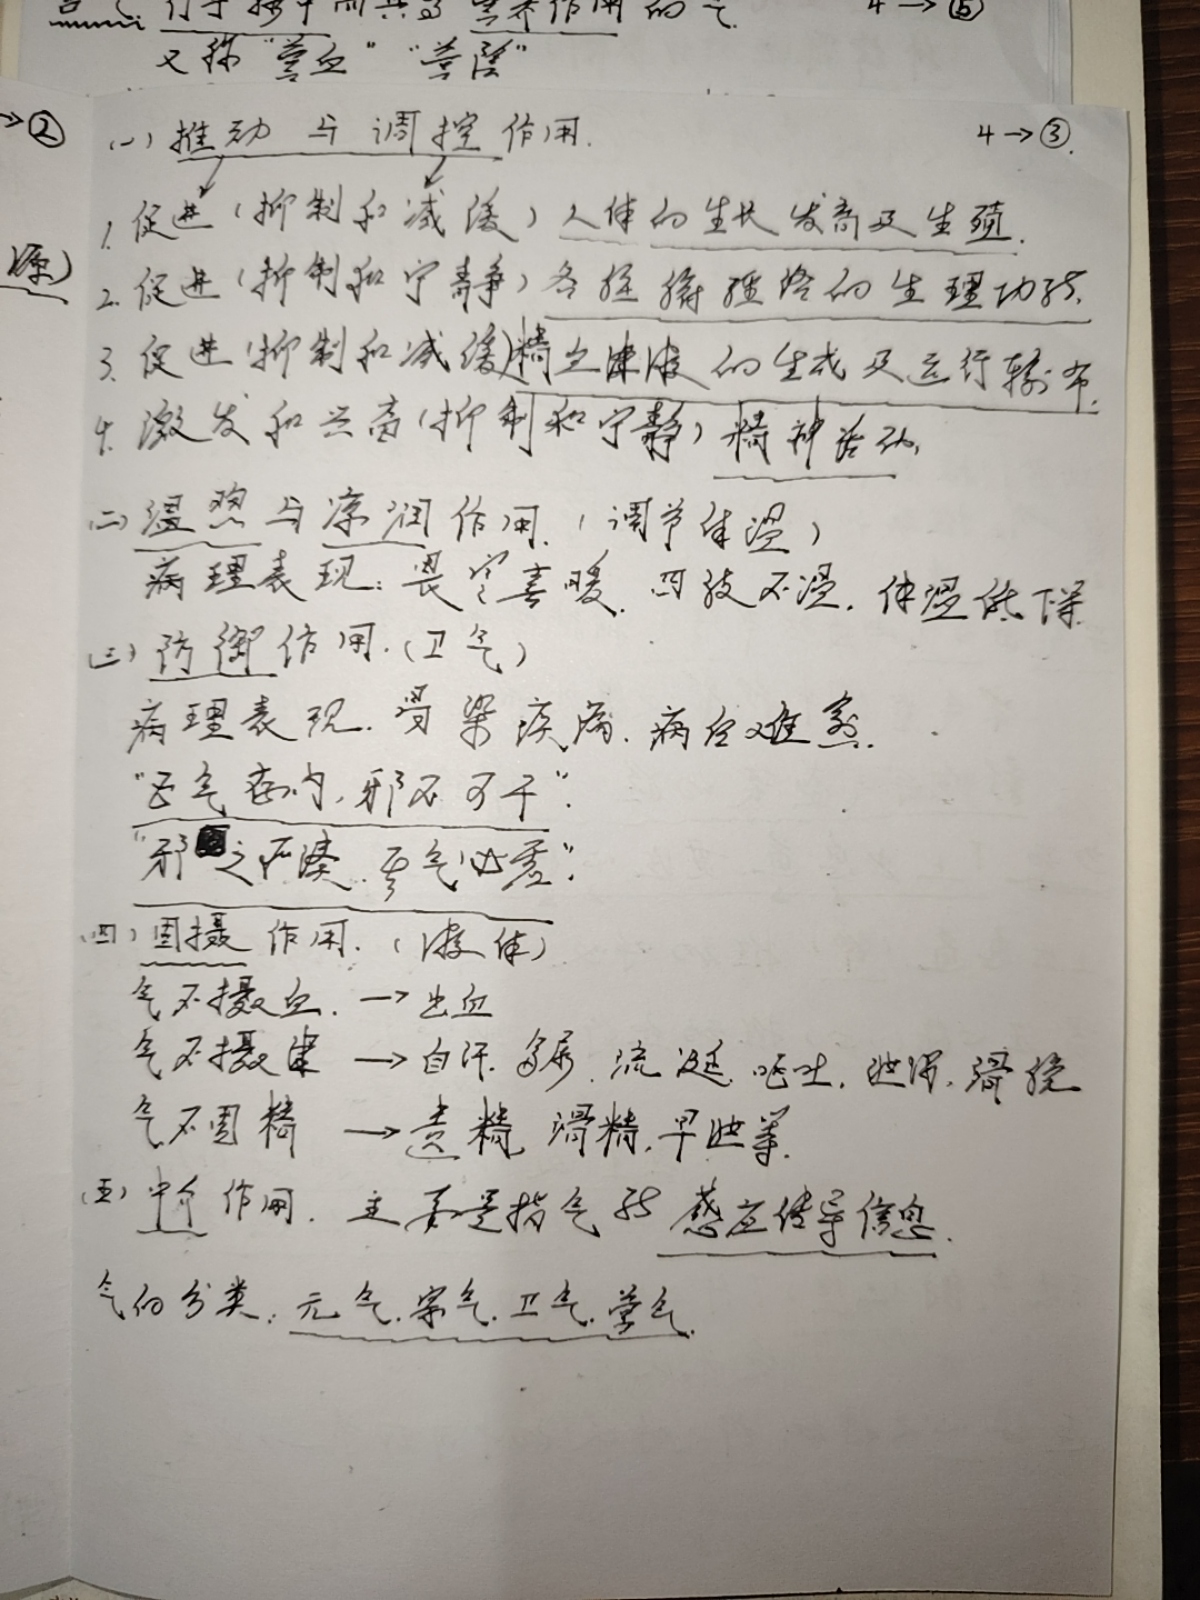 行于脉中而具有营养作用的气
4→⑤
又称"营血" "营阴"
→②
(一)推动与调控作用.
4→③.
1.促进(抑制和减缓)人体的生长发育及生殖.
源)
2.促进(抑制和宁静)各脏腑经络的生理功能.
3.促进(抑制和减缓)精血津液的生成及运行输布.
4.激发和兴奋(抑制和宁静)精神活动.
(二)温煦与凉润作用.(调节体温)
病理表现:畏寒喜暖.四肢不温.体温低下等
(三)防御作用.(卫气)
病理表现.易染疾病.病后难愈.
"正气存内,邪不可干".
"邪之所凑.其气必虚".
(四)固摄作用.(液体)
气不摄血.→出血
气不摄津→自汗.多尿.流涎.呕吐.泄泻.滑脱
气不固精→遗精,滑精,早泄等.
(五)中介作用.主要是指气能感应传导信息.
气的分类:元气.宗气.卫气.营气.